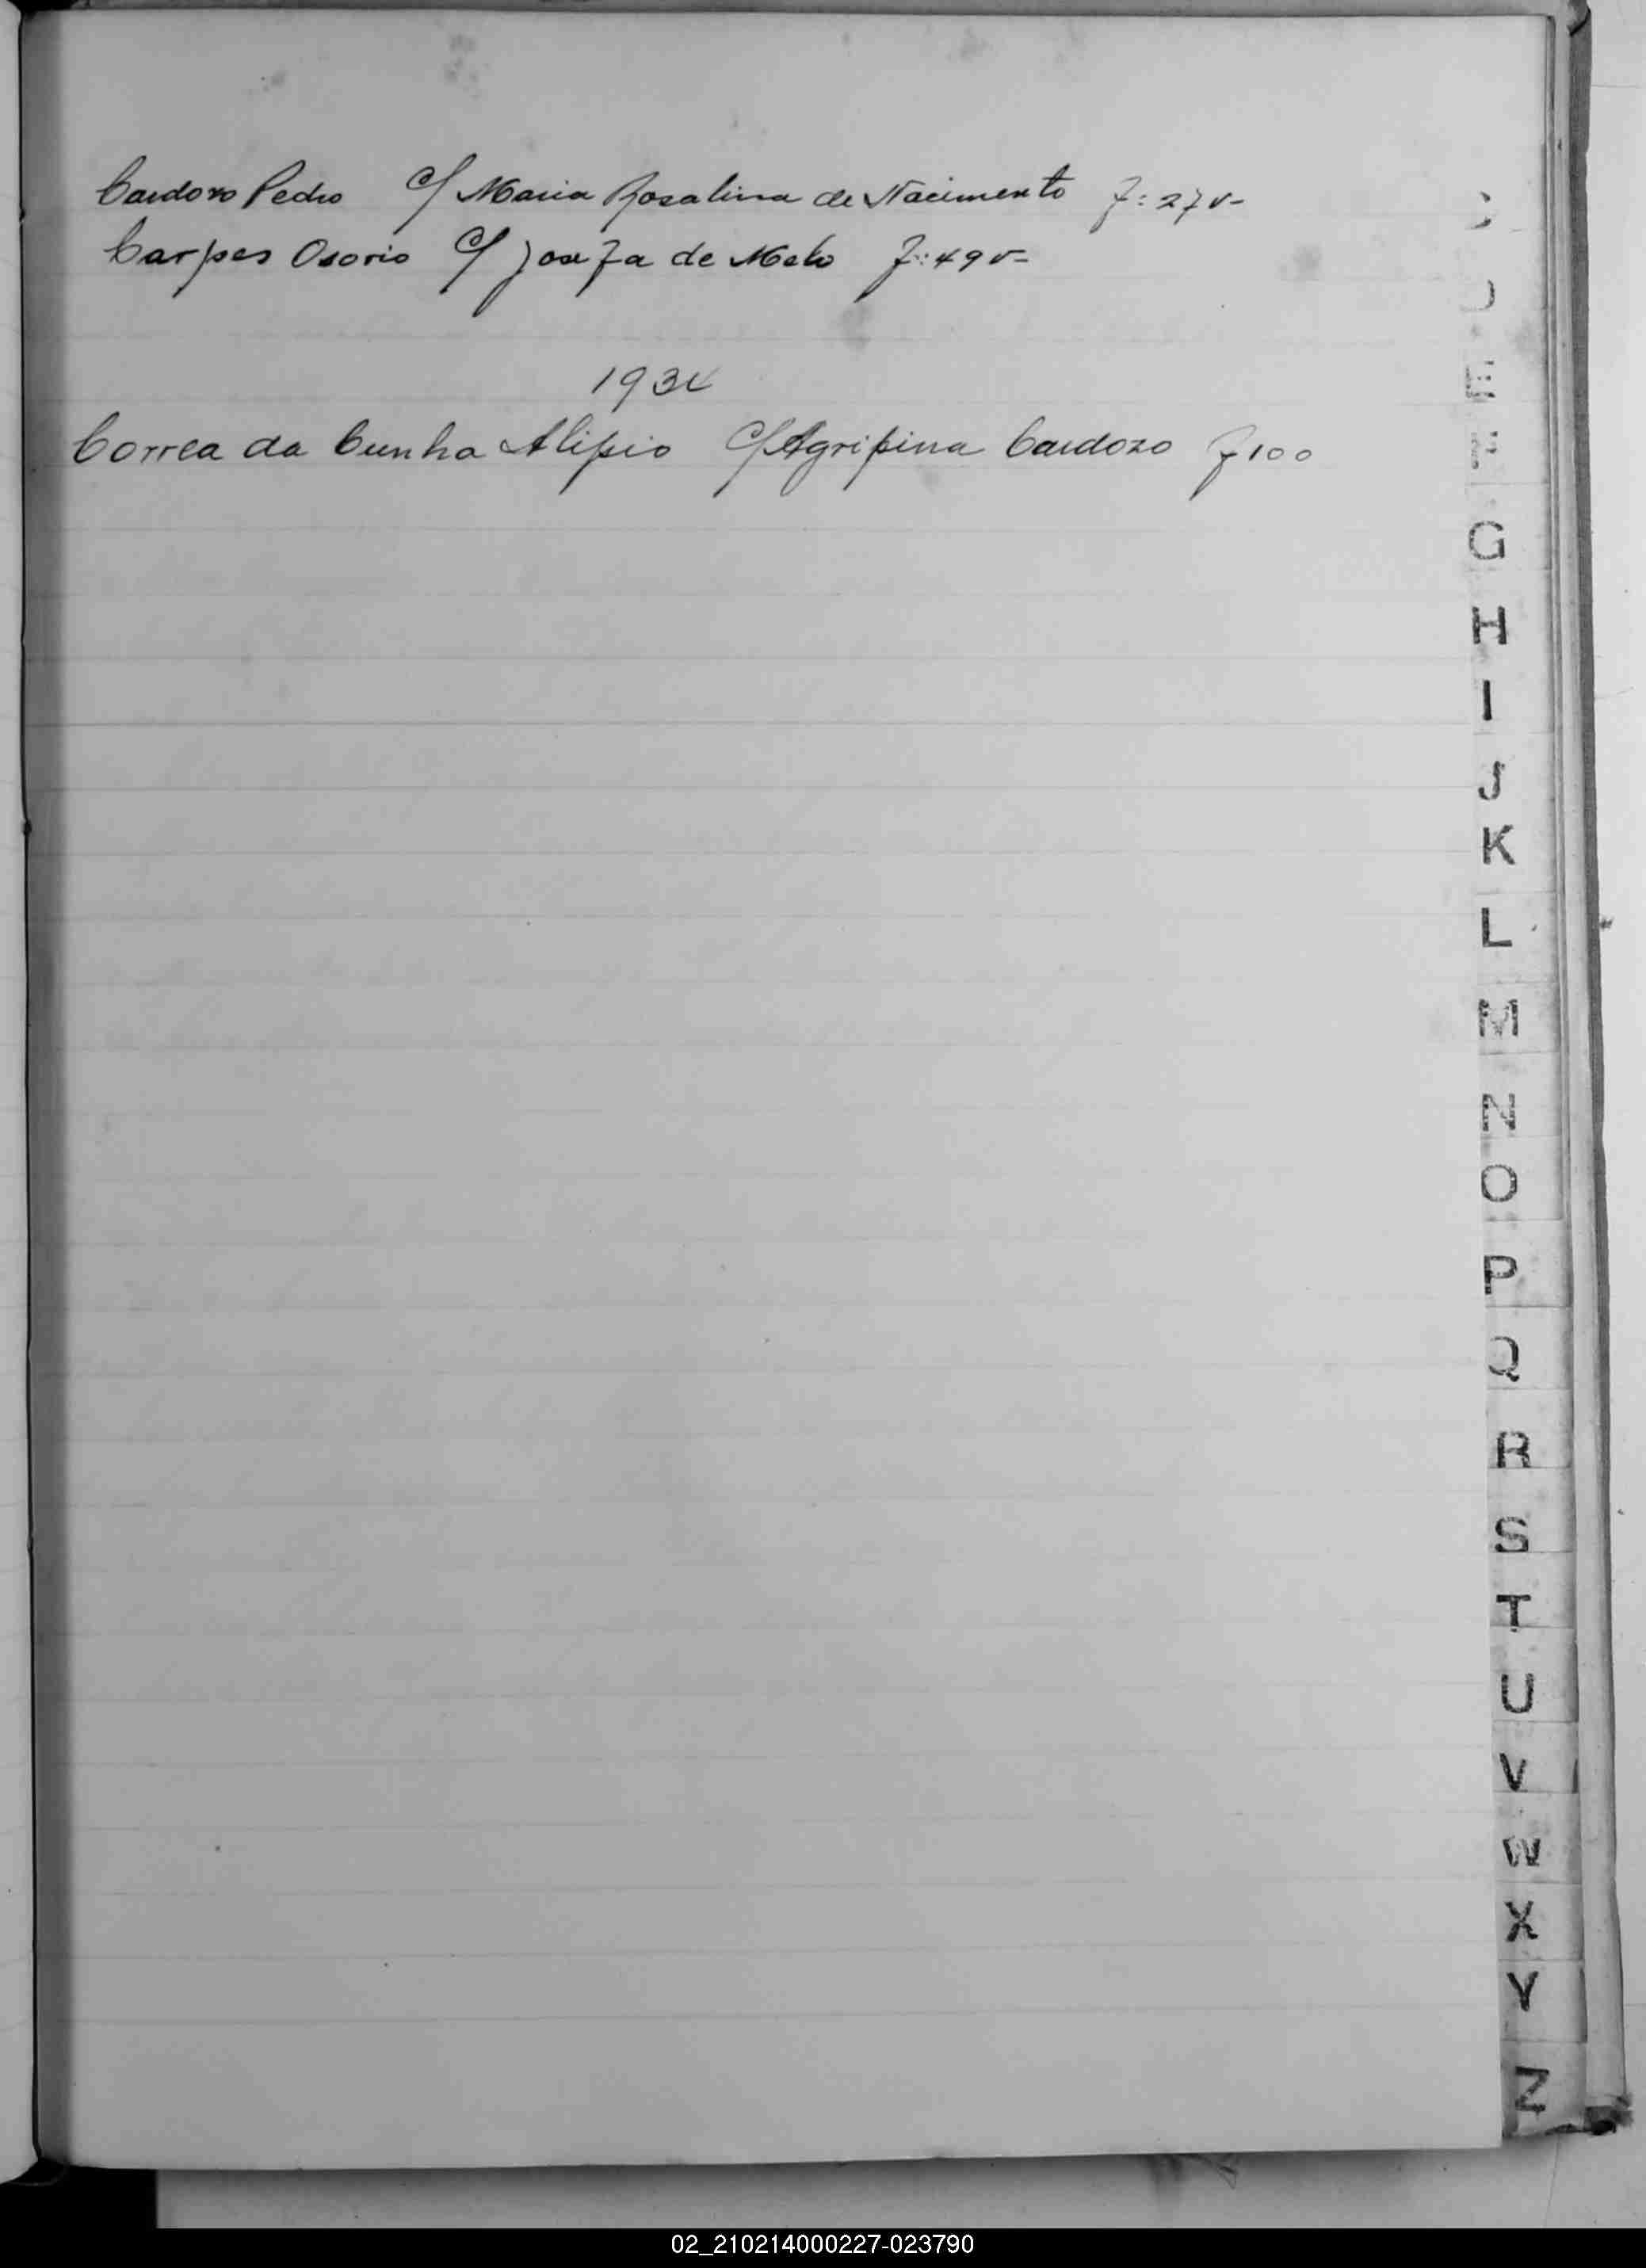 Cardozo Pedro C/ Maria Rosalina de Nacimento f: 27 v-
Carpes Osorio C/ Josefa de Melo f: 49 v-
1934
Correa da Cunha Alipio C/ Agripina Cardozo f 100
G
H
I
J
K
L
M
N
O
P
Q
R
S
T
U
V
W
X
Y
Z
02_210214000227-023790